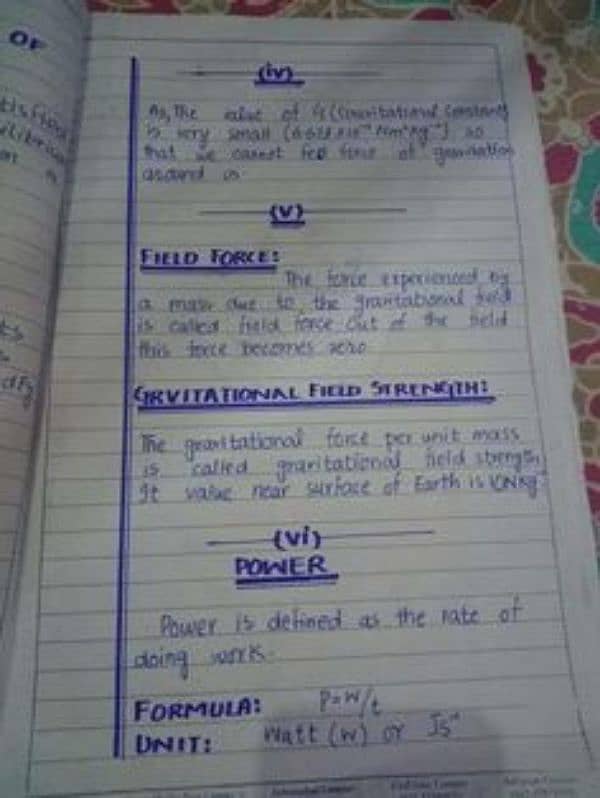 OF
(iv)
As, The value of G (Gravitational Constant)
is very small so
that we cannot feel force of gravitation
around us
(v)
FIELD FORCE:
The force experienced by
a mass due to the gravitational field
is called field force Out of the field
this force becomes zero
GRVITATIONAL FIELD STRENGTH:
The gravitational force per unit mass
is called gravitational field strength
It value near surface of Earth is 10NKg⁻¹
(vi)
POWER
Power is defined as the rate of
doing work.
FORMULA: P=W/t
UNIT: Watt (W) or Js⁻¹